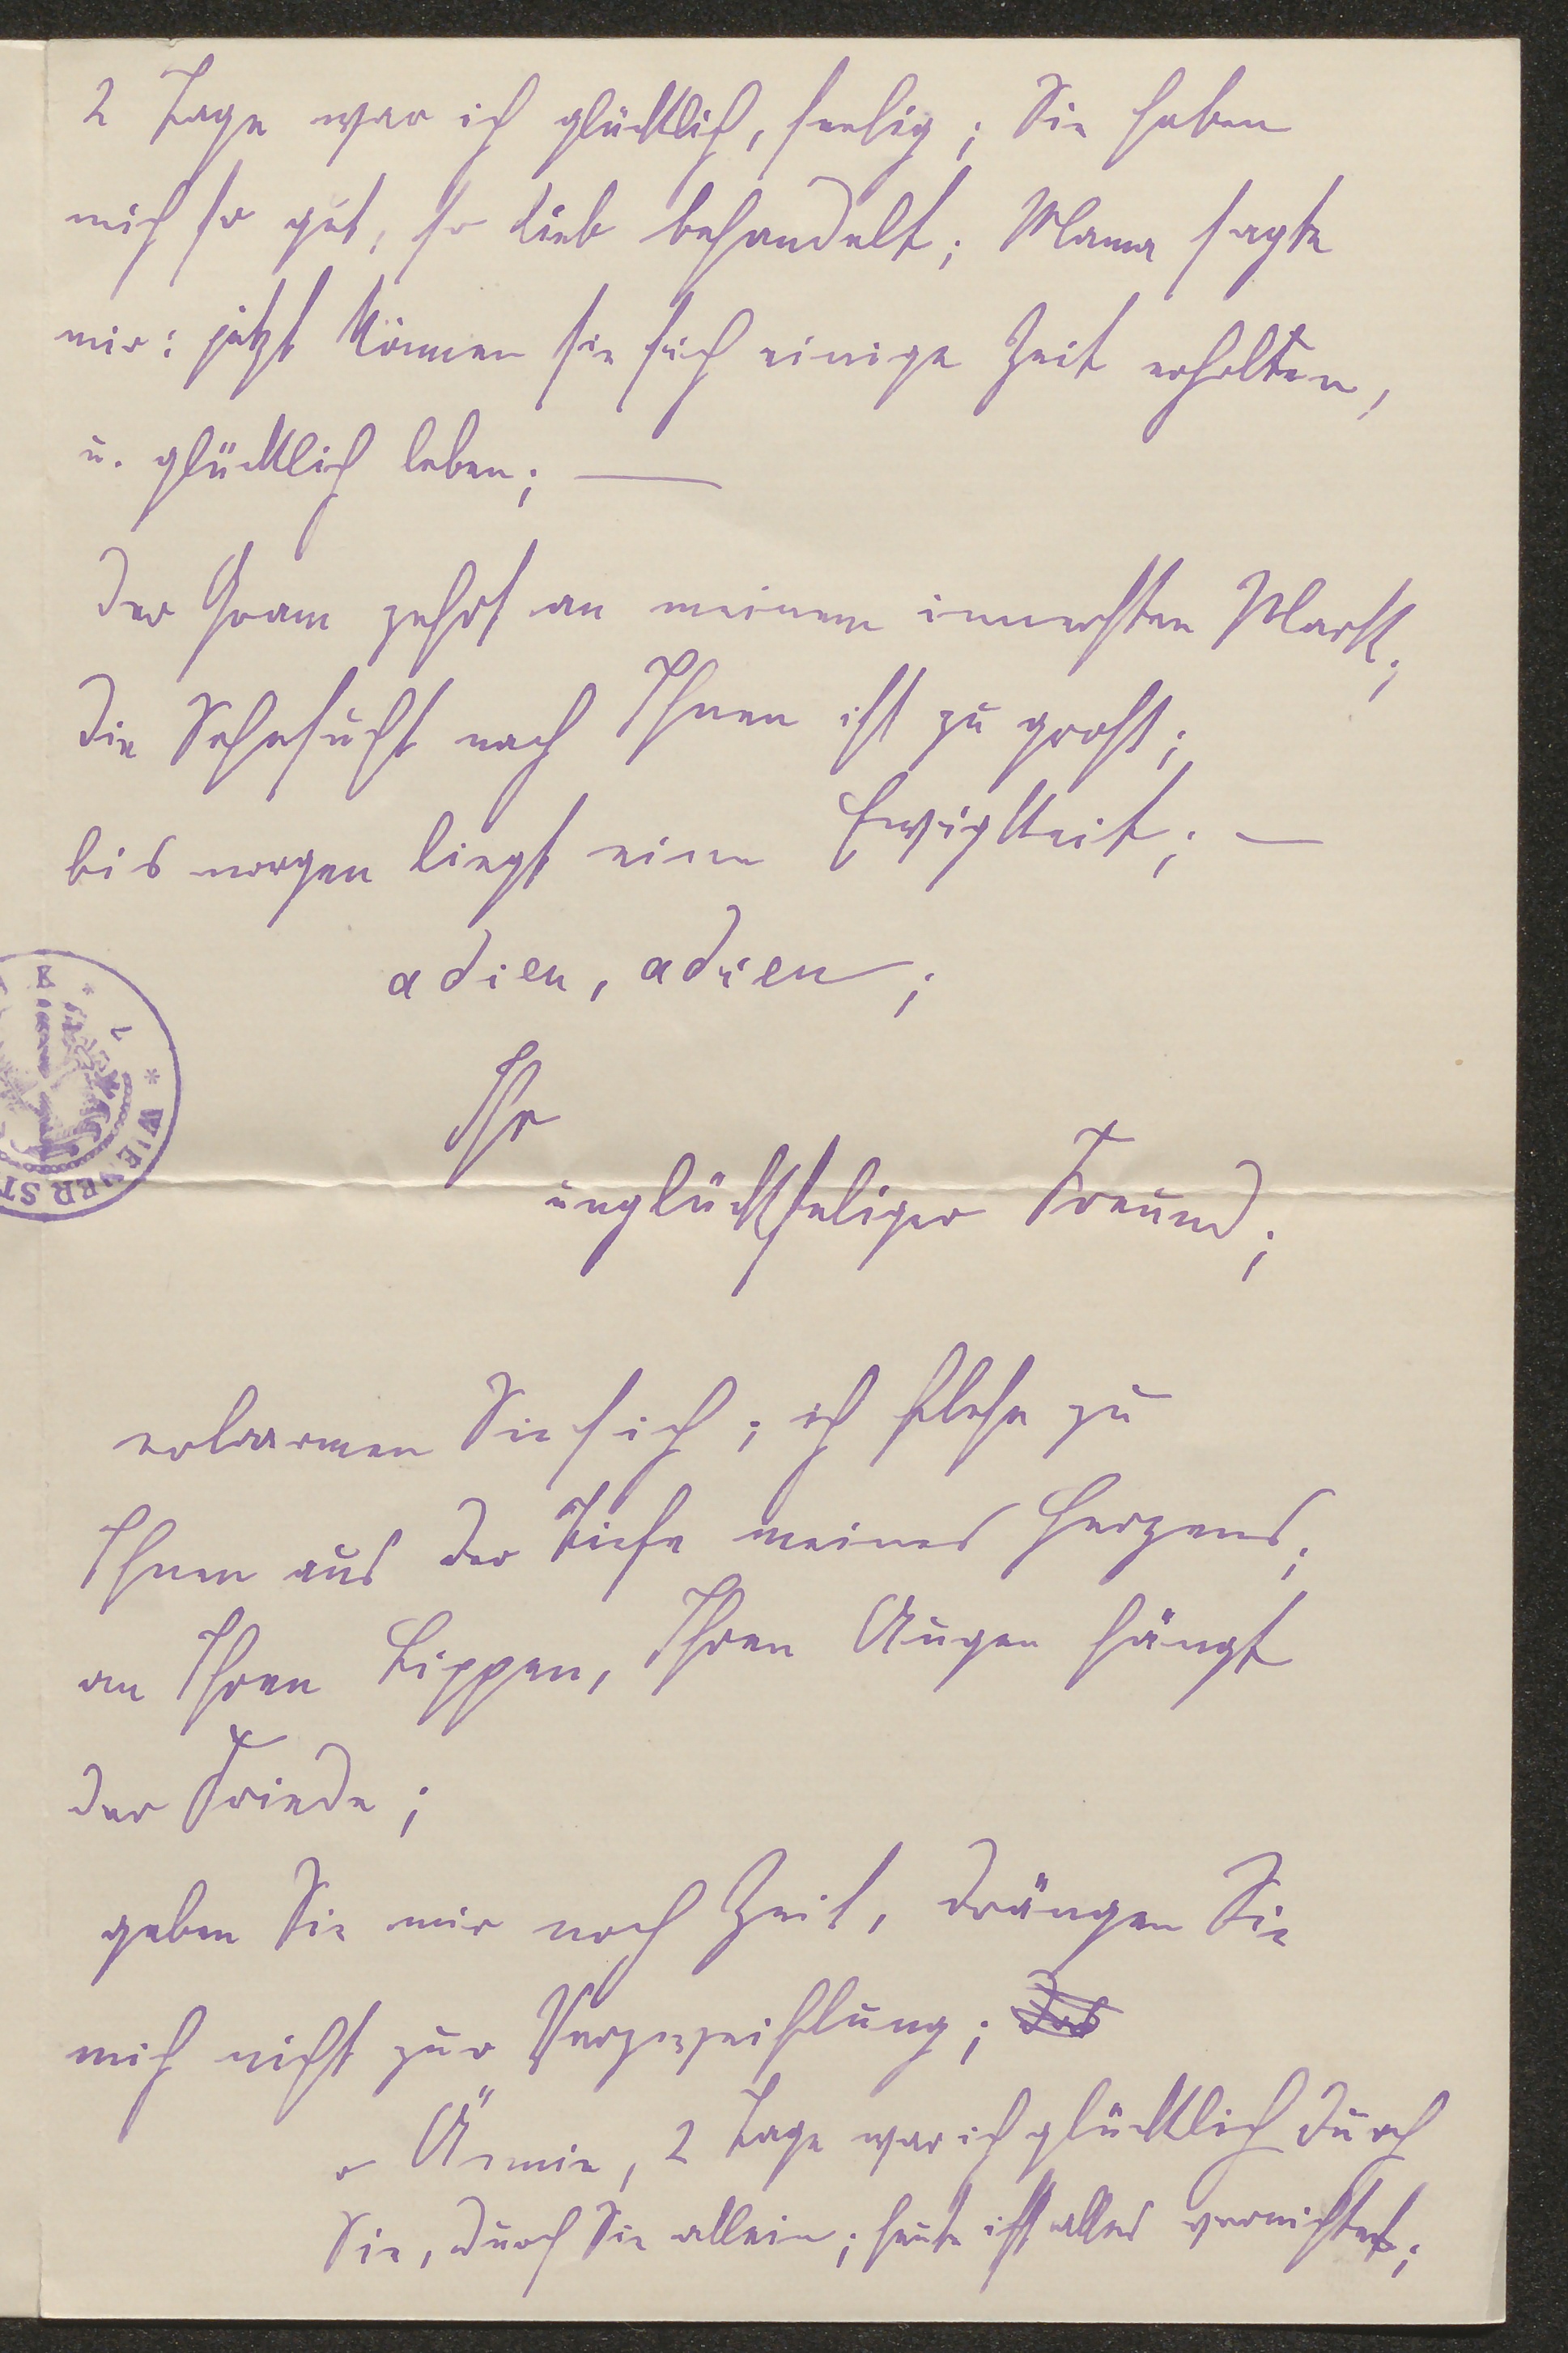 2 Tage war ich glücklich, seelig; Sie haben
mich so gut, so lieb behandelt; Mama sagte
mir: jetzt können sie sich einige Zeit erholten,
u. glücklich leben; —
Der Gram zehrt an meinem innersten Mark;
die Sehnsucht nach Ihnen ist zu groß;
bis morgen liegt eine Ewigkeit; —
adieu, adieu;
Ihr
unglückseliger Freund;
erbaarmen Sie sich; ich flehe zu
Ihnen aus der Tiefe meines Herzens;
an Ihren Lippen, Ihren Augen hängt
der Friede;
geben Sie mir noch Zeit, drängen Sie
mich nicht zur Verzweiflung;
o 2 Tage war ich glücklich durch
Sie, durch Sie allein; heute ist alles vernichtet;
WIENER ST